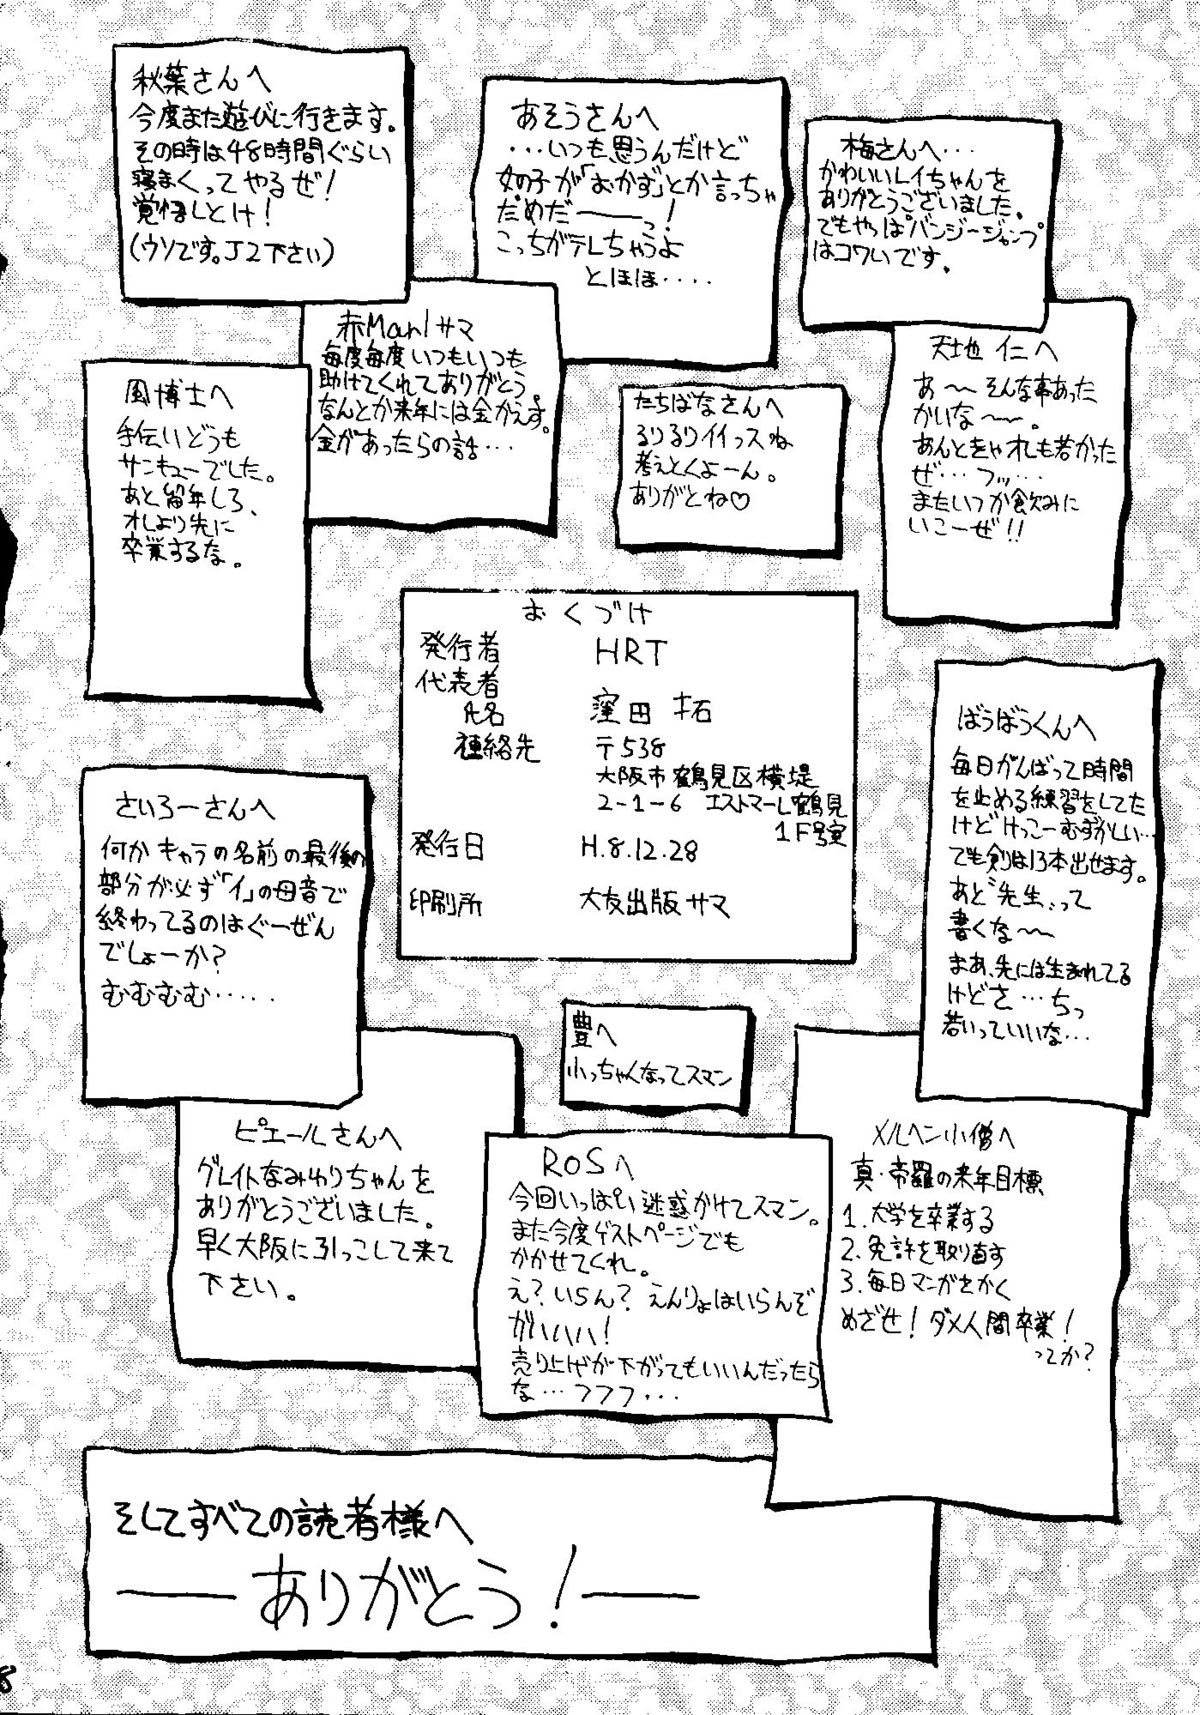 秋葉さんへ
今度また遊びに行きます。
その時は48時間ぐらい
寝まくってやるぜ!
覚悟しとけ!
(ウソです。J2下さい)
あそうさんへ
・・・いつも思うんだけど
女の子が「おかず」とか言っちゃ
だめだーーっ!
こっちがテレちゃうよ
とほほ・・・・
梅さんへ・・・
かわいいレイちゃんを
ありがとうございました。
でもやっぱ バンジージャンプ
はコワいです。
赤Manlサマ
毎度毎度いつもいつも
助けてくれてありがとう。
なんとか来年には金かえす。
金があったらの話・・・
天地 仁へ
あ〜〜そんな事あった
かいな〜〜。
あんときゃオレも若かった
ぜ・・・フッ・・・
またいつか飲みに
いこーぜ!!
風博士へ
手伝いどうも
サンキューでした。
あと留年しろ、
オレより先に
卒業するな。
たちばなさんへ
るりるりイイっスね
考えとくよーん。
ありがとね♡
おくづけ
発行者 HRT
代表者
氏名 窪田 拓
連絡先 〒538
大阪市鶴見区横堤
2-1-6 エストマーレ鶴見
1F号室
発行日 H.8.12.28
印刷所 大友出版サマ
ばうばうくんへ
毎日がんばって時間
を止める練習をしてた
けどけっこーむずかしい…
でも剣は13本出せます。
あと“先生„って
書くな〜〜
まあ、先には生まれてる
けどさ…ちっ
若いっていいな…
さいろーさんへ
何か キャラの名前の最後の
部分が必ず「イ」の母音で
終わってるのはぐーぜん
でしょーか?
むむむむ・・・・・
豊へ
小っちゃくなってスマン
ピエールさんへ
グレイトなみゆりちゃんを
ありがとうございました。
早く大阪に引っこして来て
下さい。
ROSへ
今回いっぱい迷惑かけてスマン。
また今度ゲストページでも
かかせてくれ。
え?いらん?えんりょはいらんぞ
ガハハハ!
売り上げが下がってもいいんだったら
な…フフフ・・・
メルヘン小僧へ
真・帝羅の来年目標
1.大学を卒業する
2.免許を取り直す
3.毎日マンガをかく
めざせ!ダメ人間卒業!
ってか?
そしてすべての読者様へ
――ありがとう!――
8